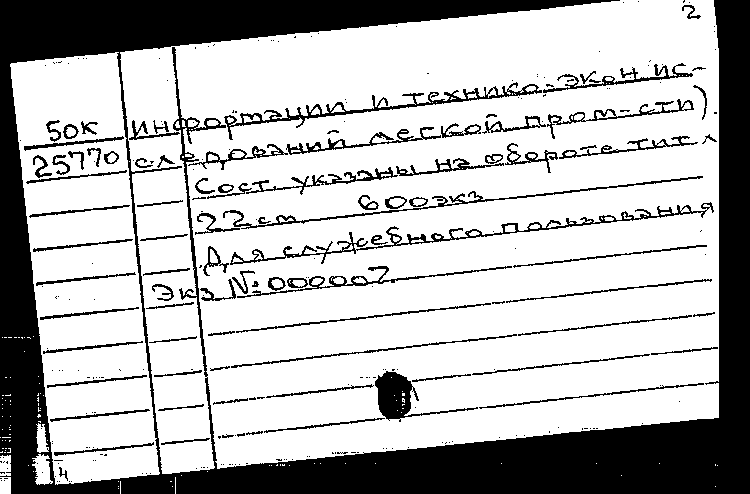 2
50к информации и технико-экон ис-
25770 следований легкой пром-сти).
Сост. указаны на обороте тит л
22 см 600 экз
Для служебного пользования
Экз № 000007.
4